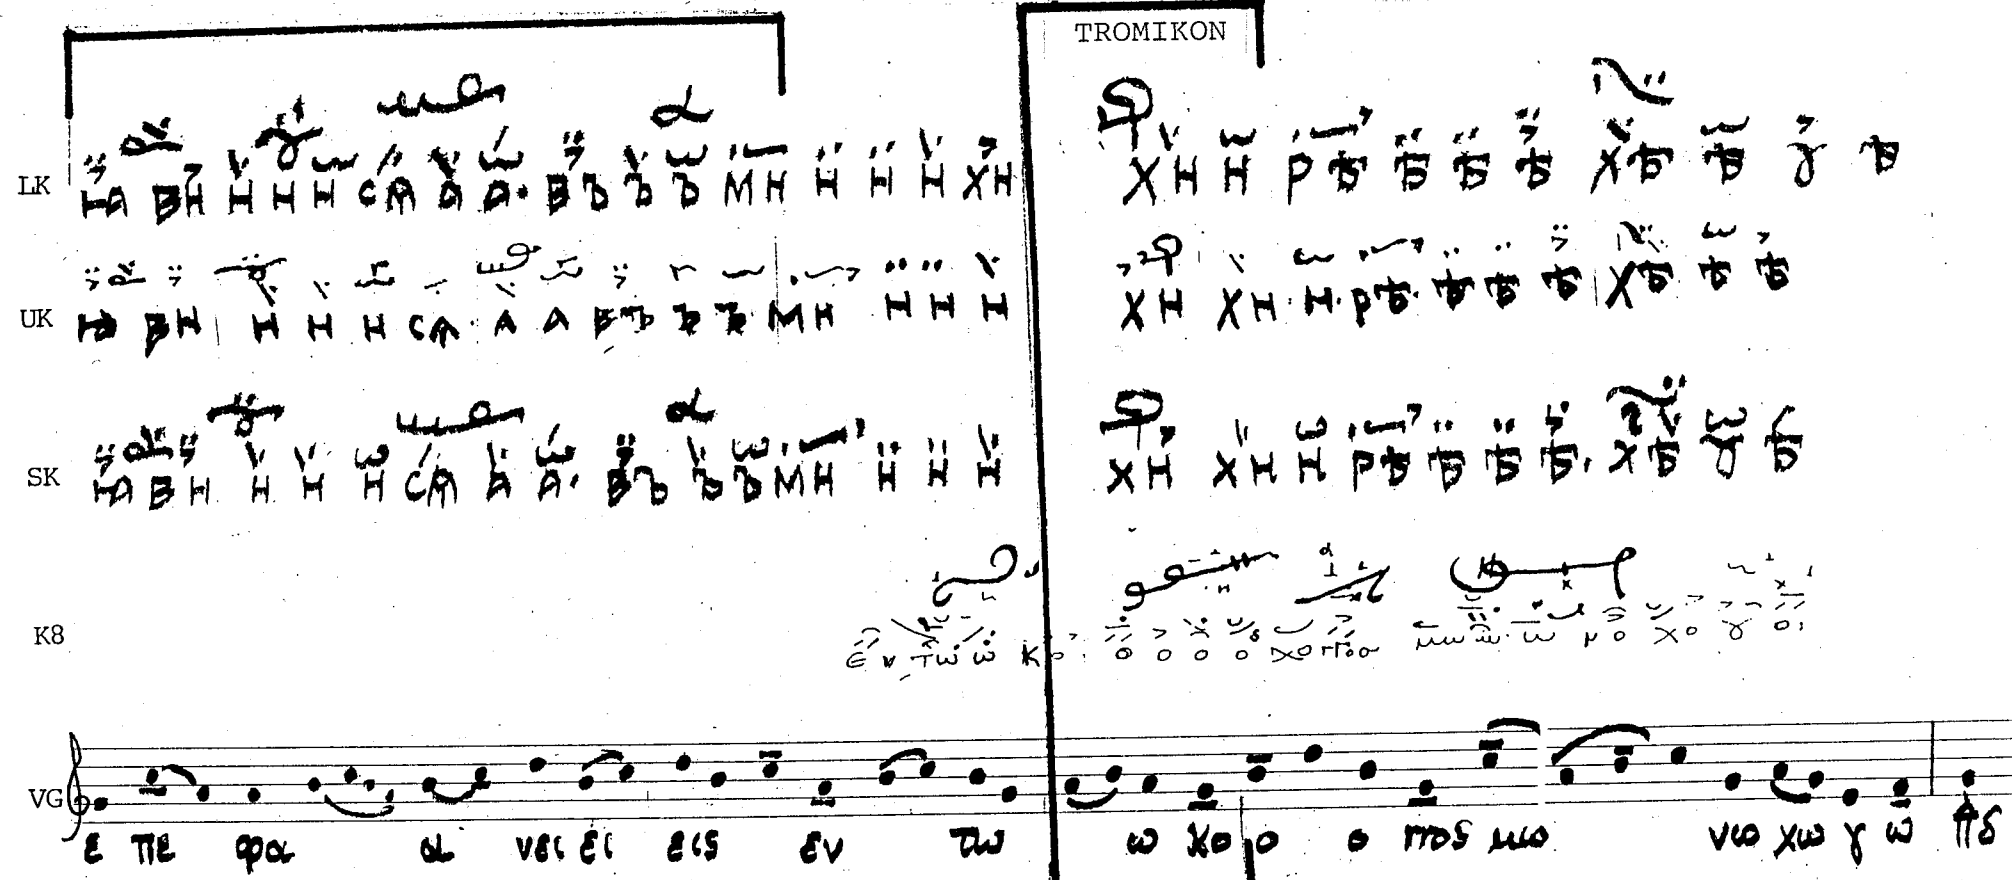 TROMIKON
LK НА ВН Н Н Н СѦ А А· ВЪ Ъ Ъ МН Н Н Н ХН ХН Н РѢ Ѣ Ѣ Ѣ ХѢ Ѣ Ɣ Ѣ
UK НА ВН Н Н Н СѦ А А ВЪ Ъ Ъ МН Н Н Н ХН ХН Н· РѢ· Ѣ Ѣ Ѣ ХѢ Ѣ Ѣ
SK НА ВН Н Н Н СѦ А А· ВЪ Ъ Ъ МН Н Н Н ХН ХН Н РѢ Ѣ Ѣ Ѣ· ХѢ Ɣ Ѣ
K8 ε ν τω ω κο ο ο ο ο χο μω ω ω μο χο γ ο
VG ε πε φα α νει ει εις εν τω ω κο ο ο πος μω νω χω γ ω